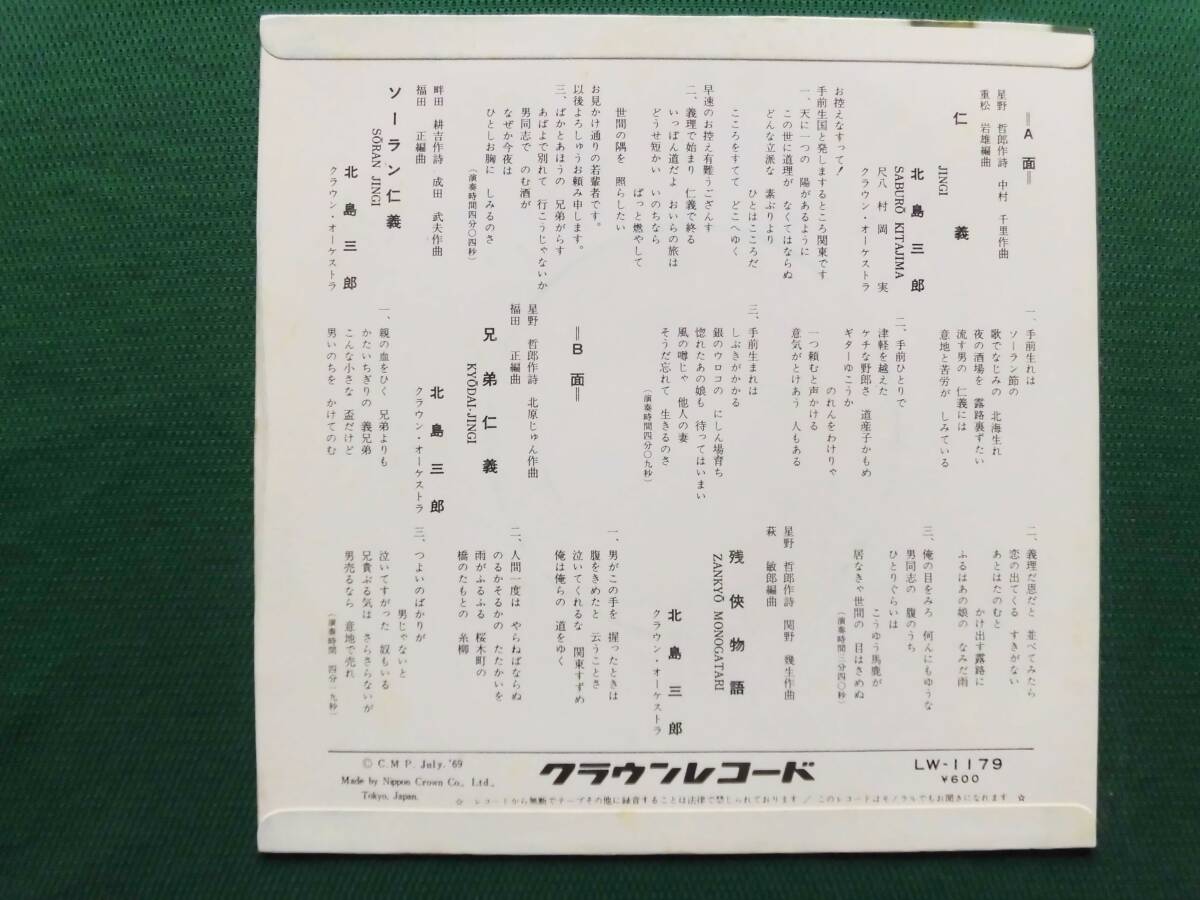 ＝A面＝
星野 哲郎作詩 中村 千里作曲
重松 岩雄編曲
仁義
JINGI
北島三郎
SABURŌ KITAJIMA
尺八 村岡 実
クラウン・オーケストラ
お控えなすって！
手前生国と発しまするところ関東です
一、天に一つの 陽があるように
この世に道理が なくてはならぬ
どんな立派な 素ぶりより
ひとはこころだ
こころをすてて どこへゆく
早速のお控え有難うござんす
二、義理で始まり 仁義で終る
いっぽん道だよ おいらの旅は
どうせ短かい いのちなら
ぱっと燃やして
世間の隅を 照らしたい
お見かけ通りの若輩者です。
以後よろしゅうお頼み申します。
三、ばかとあほうの 兄弟がらす
あばよで別れて 行こうじゃないか
男同志で のむ酒が
なぜか今夜は
ひとしお胸に しみるのさ
（演奏時間四分〇四秒）
畔田 耕吉作詩 成田 武夫作曲
福田 正編曲
ソーラン仁義
SŌRAN JINGI
北島三郎
クラウン・オーケストラ
一、手前生れは
ソーラン節の
歌でなじみの 北海生れ
夜の酒場を 露路裏ずたい
流す男の 仁義には
意地と苦労が しみている
二、手前ひとりで
津軽を越えた
ケチな野郎さ 道産子かもめ
ギターゆこうか
のれんをわけりゃ
一つ頼むと声かける
意気がとけあう 人もある
三、手前生まれは
しぶきがかかる
銀のウロコの にしん場育ち
惚れたあの娘も 待ってはいまい
風の噂じゃ 他人の妻
そうだ忘れて 生きるのさ
（演奏時間四分〇九秒）
＝B面＝
星野 哲郎作詩 北原じゅん作曲
福田 正編曲
兄弟仁義
KYŌDAI・JINGI
北島三郎
クラウン・オーケストラ
一、親の血をひく 兄弟よりも
かたいちぎりの 義兄弟
こんな小さな 盃だけど
男いのちを かけてのむ
二、義理だ恩だと 並べてみたら
恋の出てくる すきがない
あとはたのむと
かけ出す露路に
ふるはあの娘の なみだ雨
三、俺の目をみろ 何んにもゆうな
男同志の 腹のうち
ひとりぐらいは
こうゆう馬鹿が
居なきゃ世間の 目はさめぬ
（演奏時間三分四〇秒）
星野 哲郎作詩 関野 幾生作曲
萩 敏郎編曲
残侠物語
ZANKYŌ MONOGATARI
北島三郎
クラウン・オーケストラ
一、男がこの手を 握ったときは
腹をきめたと 云うことさ
泣いてくれるな 関東すずめ
俺は俺らの 道をゆく
二、人間一度は やらねばならぬ
のるかそるかの たたかいを
雨がふるふる 桜木町の
橋のたもとの 糸柳
三、つよいのばかりが
男じゃないと
泣いてすがった 奴もいる
兄貴ぶる気は さらさらないが
男売るなら 意地で売れ
（演奏時間 四分一九秒）
Ⓒ C.M.P. July. '69
Made by Nippon Crown Co., Ltd.,
Tokyo, Japan.
クラウンレコード
LW-1179
¥600
☆ レコードから無断でテープその他に録音することは法律で禁じられております / このレコードはモノラルでもお聞きになれます ☆